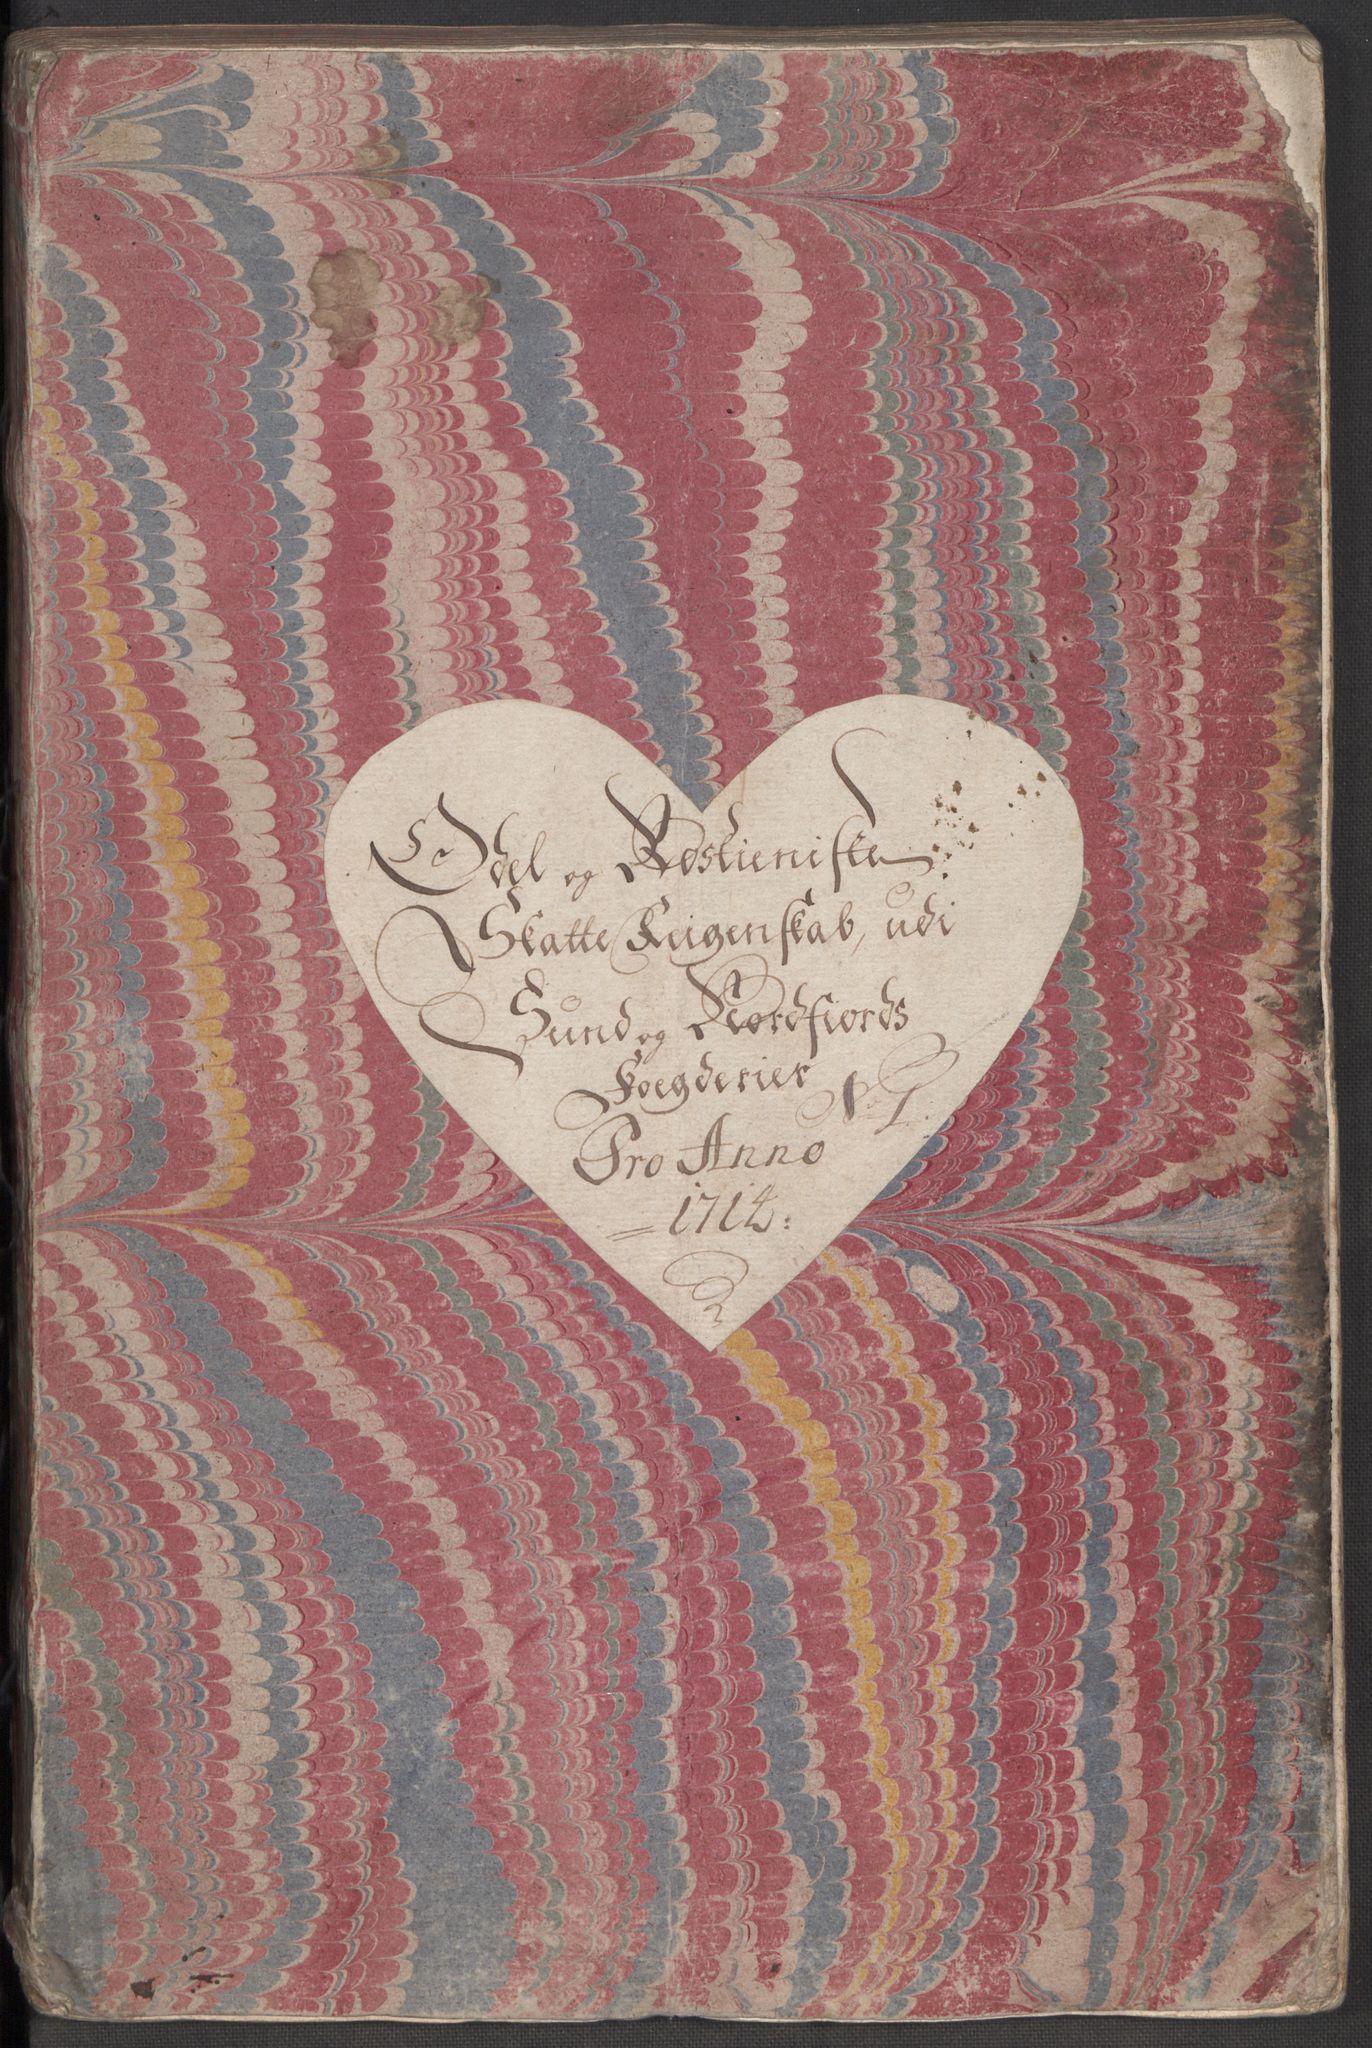 Odel og Rostieniste
Skatte Reigenskab, udi
Sund og Nordfiords
Foegderier
No 1.
Pro Anno
1714: